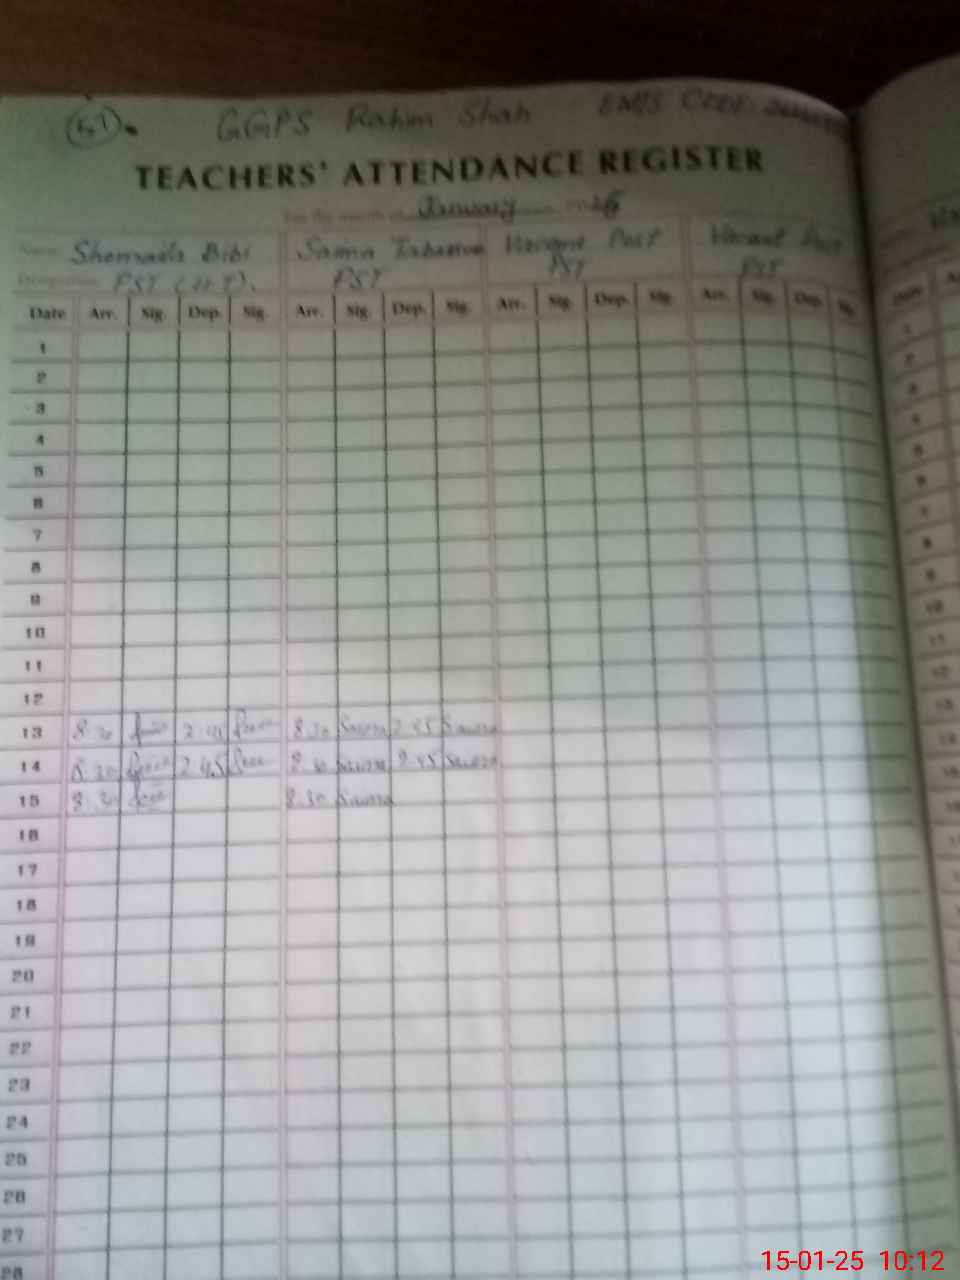 51
GGPS Rahim Shah EMIS CODE:
TEACHERS' ATTENDANCE REGISTER
For the month of January
Name Shomaila Bibi Saima Vacant Post Vacant Post
Designation PST (H.T). PST PST PST
Date Arr. Sig. Dep. Sig. Arr. Sig. Dep. Sig. Arr. Sig. Dep. Sig. Arr. Sig. Dep. Sig.
1
2
3
4
5
6
7
8
9
10
11
12
13 8:30 2:45 8:30 Saima 2:45 Saima
14 8:30 2:45 8:30 Saima 2:45 Saima
15 8:30 8:30 Saima
16
17
18
19
20
21
22
23
24
25
26
27
28
15-01-25 10:12